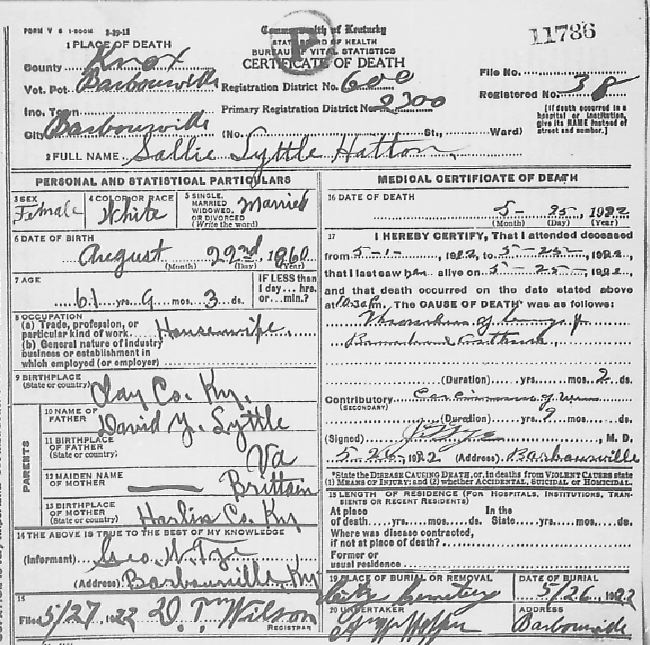 FORM V S 1-500M 3-29-12
Commonwealth of Kentucky
STATE BOARD OF HEALTH
BUREAU OF VITAL STATISTICS
CERTIFICATE OF DEATH
11786
1 PLACE OF DEATH
County Knox
Vot. Pct. Barbourville Registration District No. 600
File No.
Registered No. 38
Inc. Town Primary Registration District No. 2300
City Barbourville (No. St., Ward)
[If death occurred in a hospital or institution, give its NAME instead of street and number.]
2 FULL NAME Sallie Lyttle Hatton
PERSONAL AND STATISTICAL PARTICULARS
3 SEX Female
4 COLOR OR RACE White
5 SINGLE, MARRIED WIDOWED, OR DIVORCED (Write the word) Married
6 DATE OF BIRTH
August 22nd, 1860
(Month) (Day) (Year)
7 AGE
61 yrs. 9 mos. 3 ds.
IF LESS than 1 day... hrs. or... min.?
8 OCCUPATION
(a) Trade, profession, or particular kind of work Housewife
(b) General nature of industry business or establishment in which employed (or employer)
9 BIRTHPLACE (State or country) Clay Co. Ky.
PARENTS
10 NAME OF FATHER David Y. Lyttle
11 BIRTHPLACE OF FATHER (State or country) Va
12 MAIDEN NAME OF MOTHER Brittain
13 BIRTHPLACE OF MOTHER (State or country) Harlin Co. Ky
14 THE ABOVE IS TRUE TO THE BEST OF MY KNOWLEDGE
(Informant) Geo. W. Tye
(Address) Barbourville Ky
15
Filed 5/27, 1922 Wilson
REGISTRAR
MEDICAL CERTIFICATE OF DEATH
16 DATE OF DEATH
5- 25, 1922
(Month) (Day) (Year)
17 I HEREBY CERTIFY, That I attended deceased
from 5-1-, 1922, to 5-25-, 1922,
that I last saw her alive on 5-25-, 1922,
and that death occurred on the date stated above
at m. The CAUSE OF DEATH* was as follows:
of
(Duration) yrs. mos. 2 ds.
Contributory (SECONDARY) of
(Duration) yrs. mos. ds.
(Signed) , M. D.
5-26, 1922 (Address) Barbourville
*State the DISEASE CAUSING DEATH, or, in deaths from VIOLENT CAUSES state (1) MEANS OF INJURY; and (2) whether ACCIDENTAL, SUICIDAL or HOMICIDAL.
18 LENGTH OF RESIDENCE (FOR HOSPITALS, INSTITUTIONS, TRANSIENTS OR RECENT RESIDENTS)
At place of death yrs. mos. ds. In the State yrs. mos. ds.
Where was disease contracted, if not at place of death?
Former or usual residence
19 PLACE OF BURIAL OR REMOVAL Cemetery
DATE OF BURIAL 5/26, 1922
20 UNDERTAKER
ADDRESS Barbourville